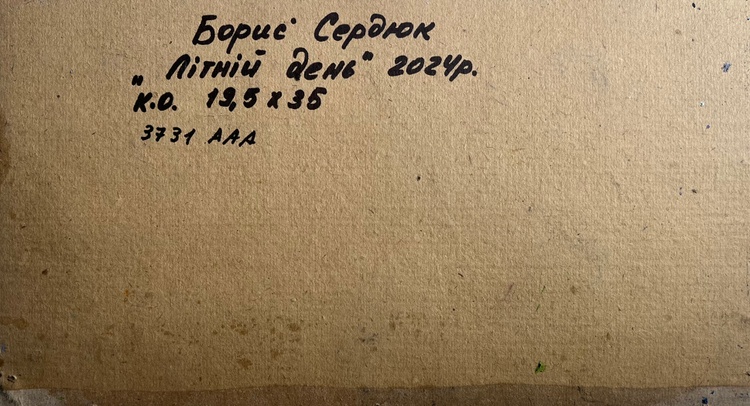 Борис Сердюк
„Літній день" 2024р.
к.о. 19,5 x 35
3731 AAA